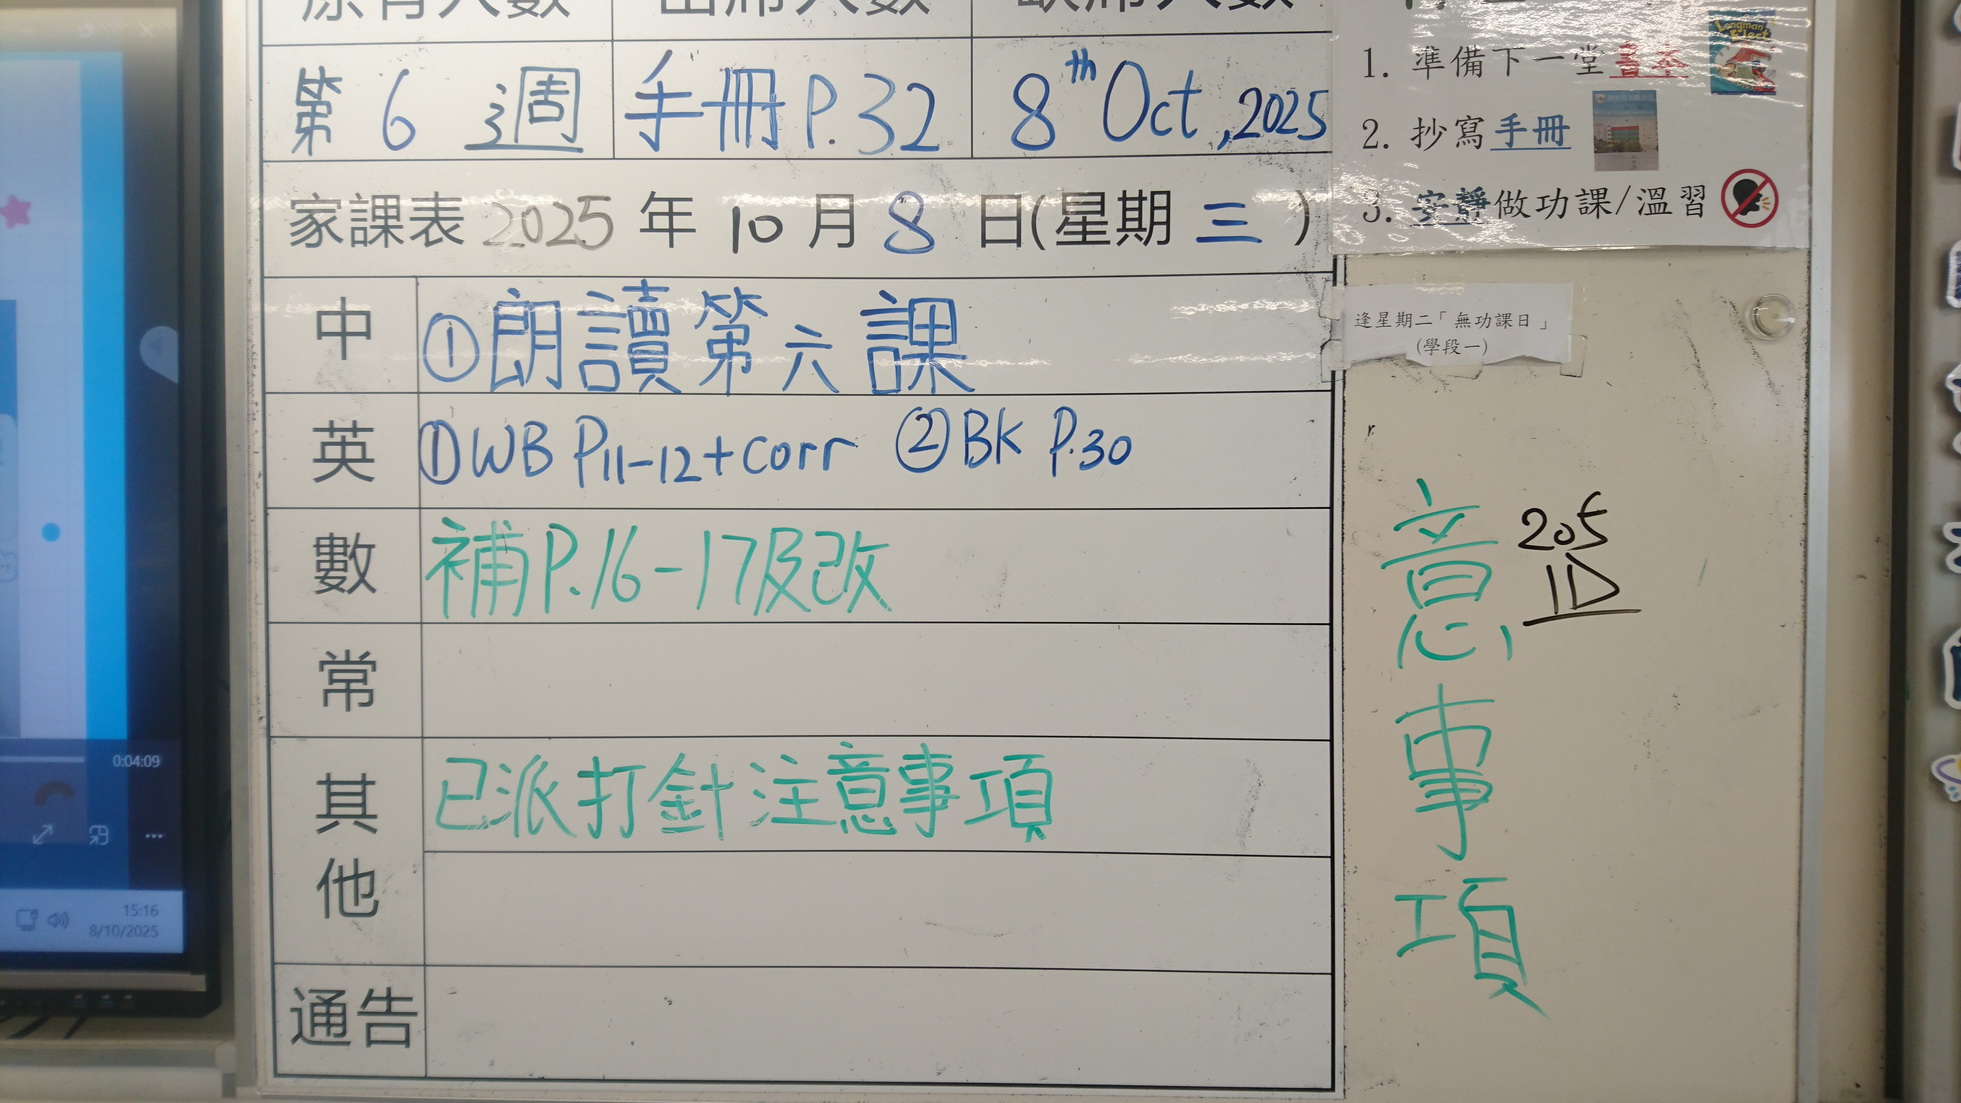 原有人數 出席人數 缺席人數
第 6 週 手冊 P.32 8th Oct, 2025
家課表 2025 年 10 月 8 日(星期 三 )
中 ①朗讀第六課
英 ①WB P11-12+corr ②BK P.30
數 補P.16-17及改
常
其他 已派打針注意事項
通告
1. 準備下一堂書本
2. 抄寫手冊
3. 安靜做功課/溫習
逢星期二「無功課日」
(學段一)
意事項
205
1D
0:04:09
15:16
8/10/2025